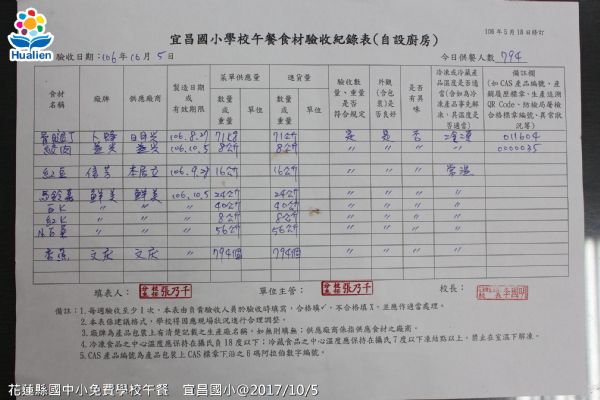 Hualien
106年5月18日修訂
宜昌國小學校午餐食材驗收紀錄表(自設廚房)
驗收日期:106年10月5日
今日供餐人數 794
食材名稱 廠牌 供應廠商 製造日期或有效期限 菜單供應量 數量或重量 單位 進貨量 數量或重量 單位 驗收數量、重量是否符合規定 外觀(含包裝)是否良好 是否有異味 冷凍或冷藏產品溫度是否適當(如為冷凍產品事先解凍,其溫度是否適當) 備註欄(如CAS產品編號、產銷履歷標章、生產追溯QR Code、防檢局屠檢合格標章編號、異常狀況等)
106.8.27 71公斤 71公斤 是 是 否 冷凍 011604
絞肉 106.10.5 8公斤 8公斤 〃 〃 〃 〃 0000035
紅豆 106.9.27 16公斤 16公斤 〃 〃 〃 常溫
馬鈴薯 鮮美 鮮美 106.10.5 24公斤 24公斤 〃 〃 〃
〃 〃 〃 40公斤 40公斤 〃 〃 〃
紅K 〃 〃 〃 8公斤 8公斤 〃 〃 〃
〃 〃 〃 56公斤 56公斤 〃 〃 〃
香蕉 文庆 文庆 〃 794個 794個 〃 〃 〃
填表人: 張乃千 單位主管: 張乃千 校長:
備註:1.每週驗收至少1次,本表由負責驗收人員於驗收時填寫,合格填✓,不合格填X,並應作適當處理。
2.本表係建議格式,學校得因應現場狀況進行合理調整。
3.廠牌為產品包裝上有清楚記載之生產廠名稱,如無則填無;供應廠商係指供應食材之廠商。
4.冷凍食品之中心溫度應保持在攝氏負18度以下;冷藏食品之中心溫度應保持在攝氏7度以下凍結點以上,禁止在室溫下解凍。
5.CAS產品編號為產品包裝上CAS標章下沿之6碼阿拉伯數字編號。
花蓮縣國中小免費學校午餐 宜昌國小@2017/10/5